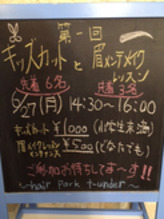 第一回
キッズカットと眉メンテメイク
レッスン
先着6名 先着3名
6/27(月) 14:30~16:00
キッズカット ¥1000 (小学生未満)
眉メイクレッスン
メンテナンス ¥500(どなたでも)
ご参加お待ちしてまーす!!
~hair Park t-under~